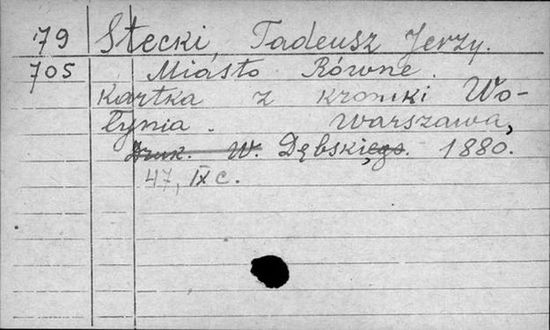 79 Stecki, Tadeusz Jerzy.
705 Miasto Równe.
Kartka z kroniki Wo-
łynia. Warszawa,
Druk. W. Dębskiego. 1880.
47, IX c.